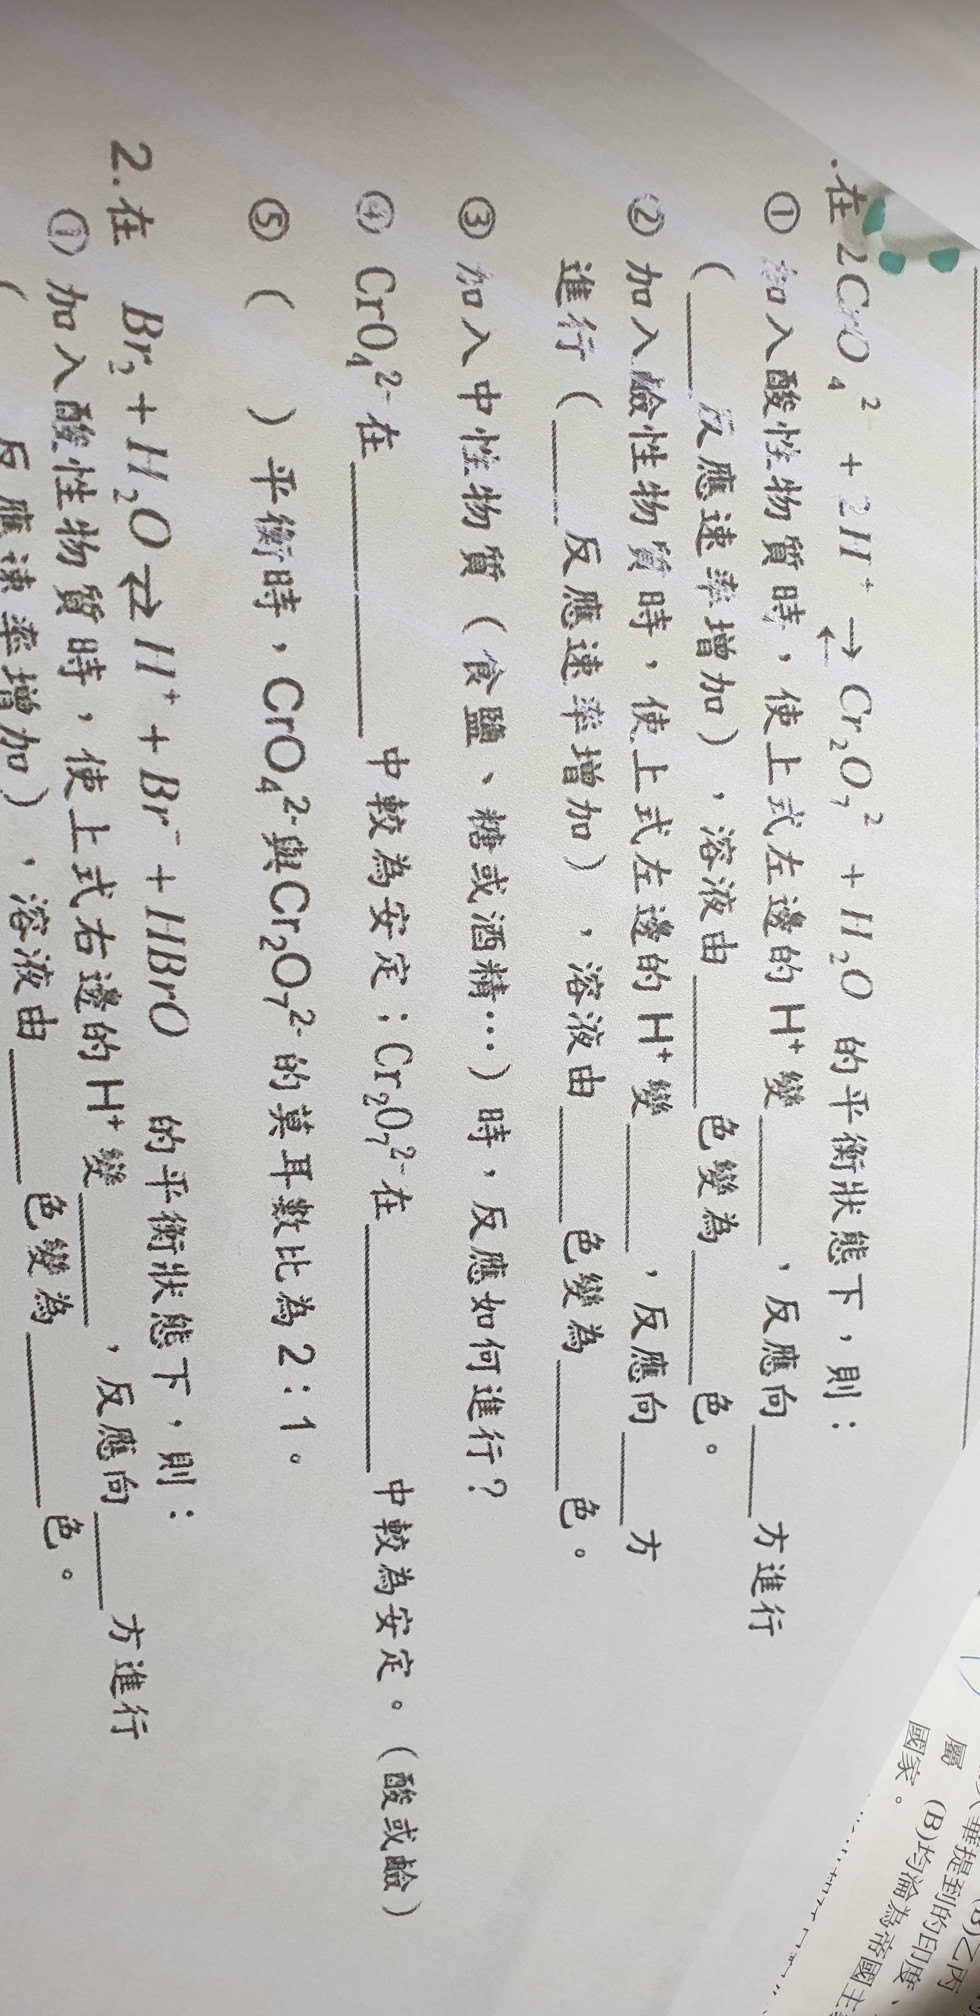 .在 2CrO₄² + 2H⁺ ⇄ Cr₂O₇² + H₂O 的平衡狀態下，則：
① 加入酸性物質時，使上式左邊的H⁺變____，反應向____方進行
(____反應速率增加)，溶液由____色變為____色。
② 加入鹼性物質時，使上式左邊的H⁺變____，反應向____方
進行(____反應速率增加)，溶液由____色變為____色。
③ 加入中性物質(食鹽、糖或酒精…)時，反應如何進行？
④ CrO₄²⁻在________中較為安定；Cr₂O₇²⁻在________中較為安定。(酸或鹼)
⑤ (　　)平衡時，CrO₄²⁻與Cr₂O₇²⁻的莫耳數比為2：1。
2.在 Br₂ + H₂O ⇄ H⁺ + Br⁻ + HBrO 的平衡狀態下，則：
① 加入酸性物質時，使上式右邊的H⁺變____，反應向____方進行
(　　反應速率增加)，溶液由____色變為____色。
(B)乙丙
提到的印度、
屬 (B)均淪為帝國主
國家。